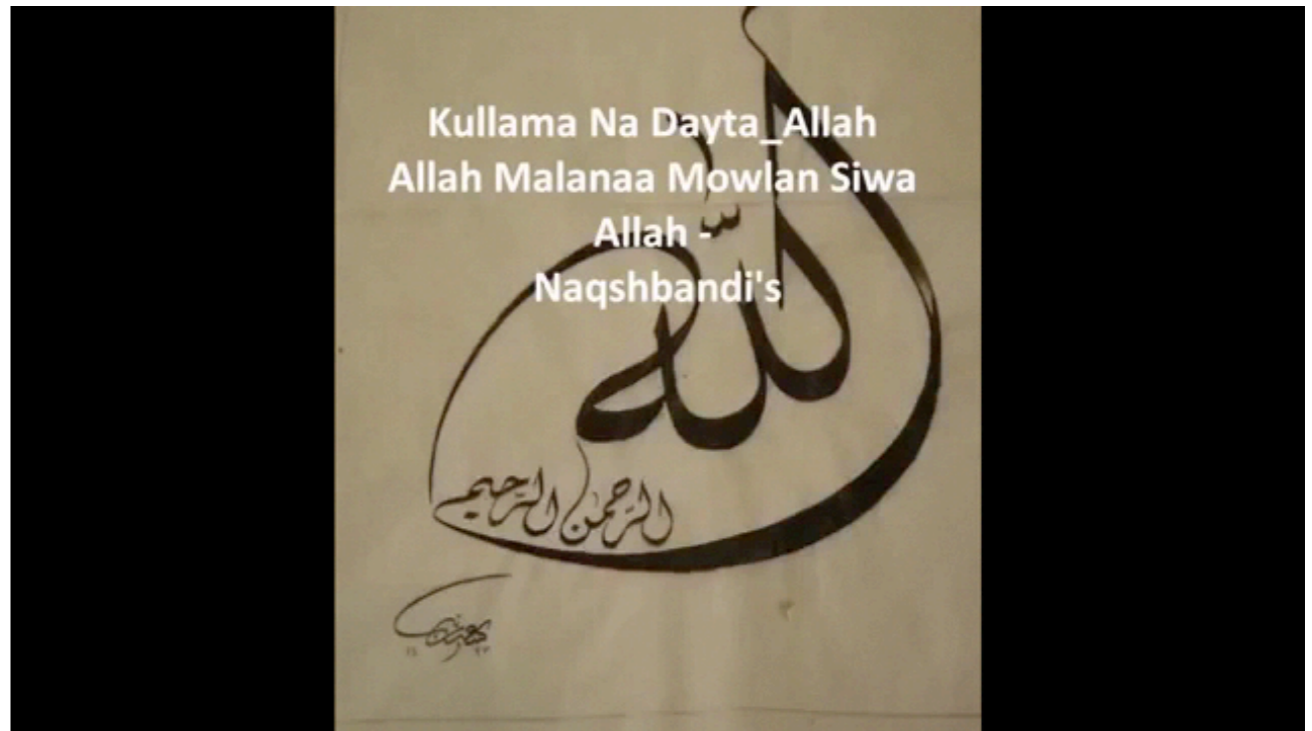 Kullama Na Dayta_Allah
Allah Malanaa Mowlan Siwa
Allah -
Naqshbandi's
الله
الرحمن الرحيم